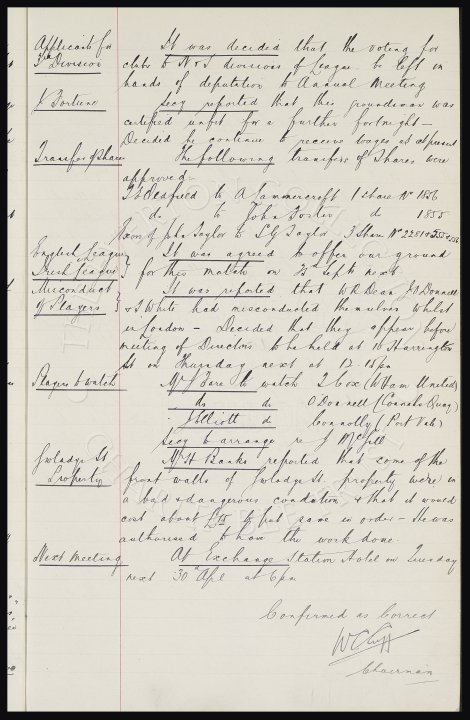 Applicants for It was decided that the voting for
3rd Division clubs to N & S divisions of League be left in
hands of deputation to Annual Meeting
J Fortune Secy reported that this groundsman was
certified unfit for a further fortnight –
Decided he continue to receive wages as at present
Transfer of Shares The following transfers of Shares were
approved –
to A Hammercroft 1 Share No 1856
do to John Foster do 1855
Exors of John Taylor to Taylor 3 Share No
English League It was agreed to offer our ground
Irish League for this match on Sept next
Misconduct It was reported that W R Dean J O'Donnell
of Players & T White had misconducted themselves whilst
in London – Decided that they appear before
meeting of Directors to be held at Harrington
St on Thursday next at 12-15 pm
Players to watch Mr Fare to watch J Cox (W Ham United)
do do O'Donnell (Connahs Quay)
J Elliott do Connolly (Port Vale)
Secy to arrange re J McGill
Gwladys St Mr H Banks reported that some of the
Property front walls of Gwladys St property were in
a bad & dangerous condition & that it would
cost about to put same in order – He was
authorised to have the work done.
Next Meeting At Exchange Station Hotel on Tuesday
next 30th Apl at 6 pm
Confirmed as Correct
W C Cuff
Chairman